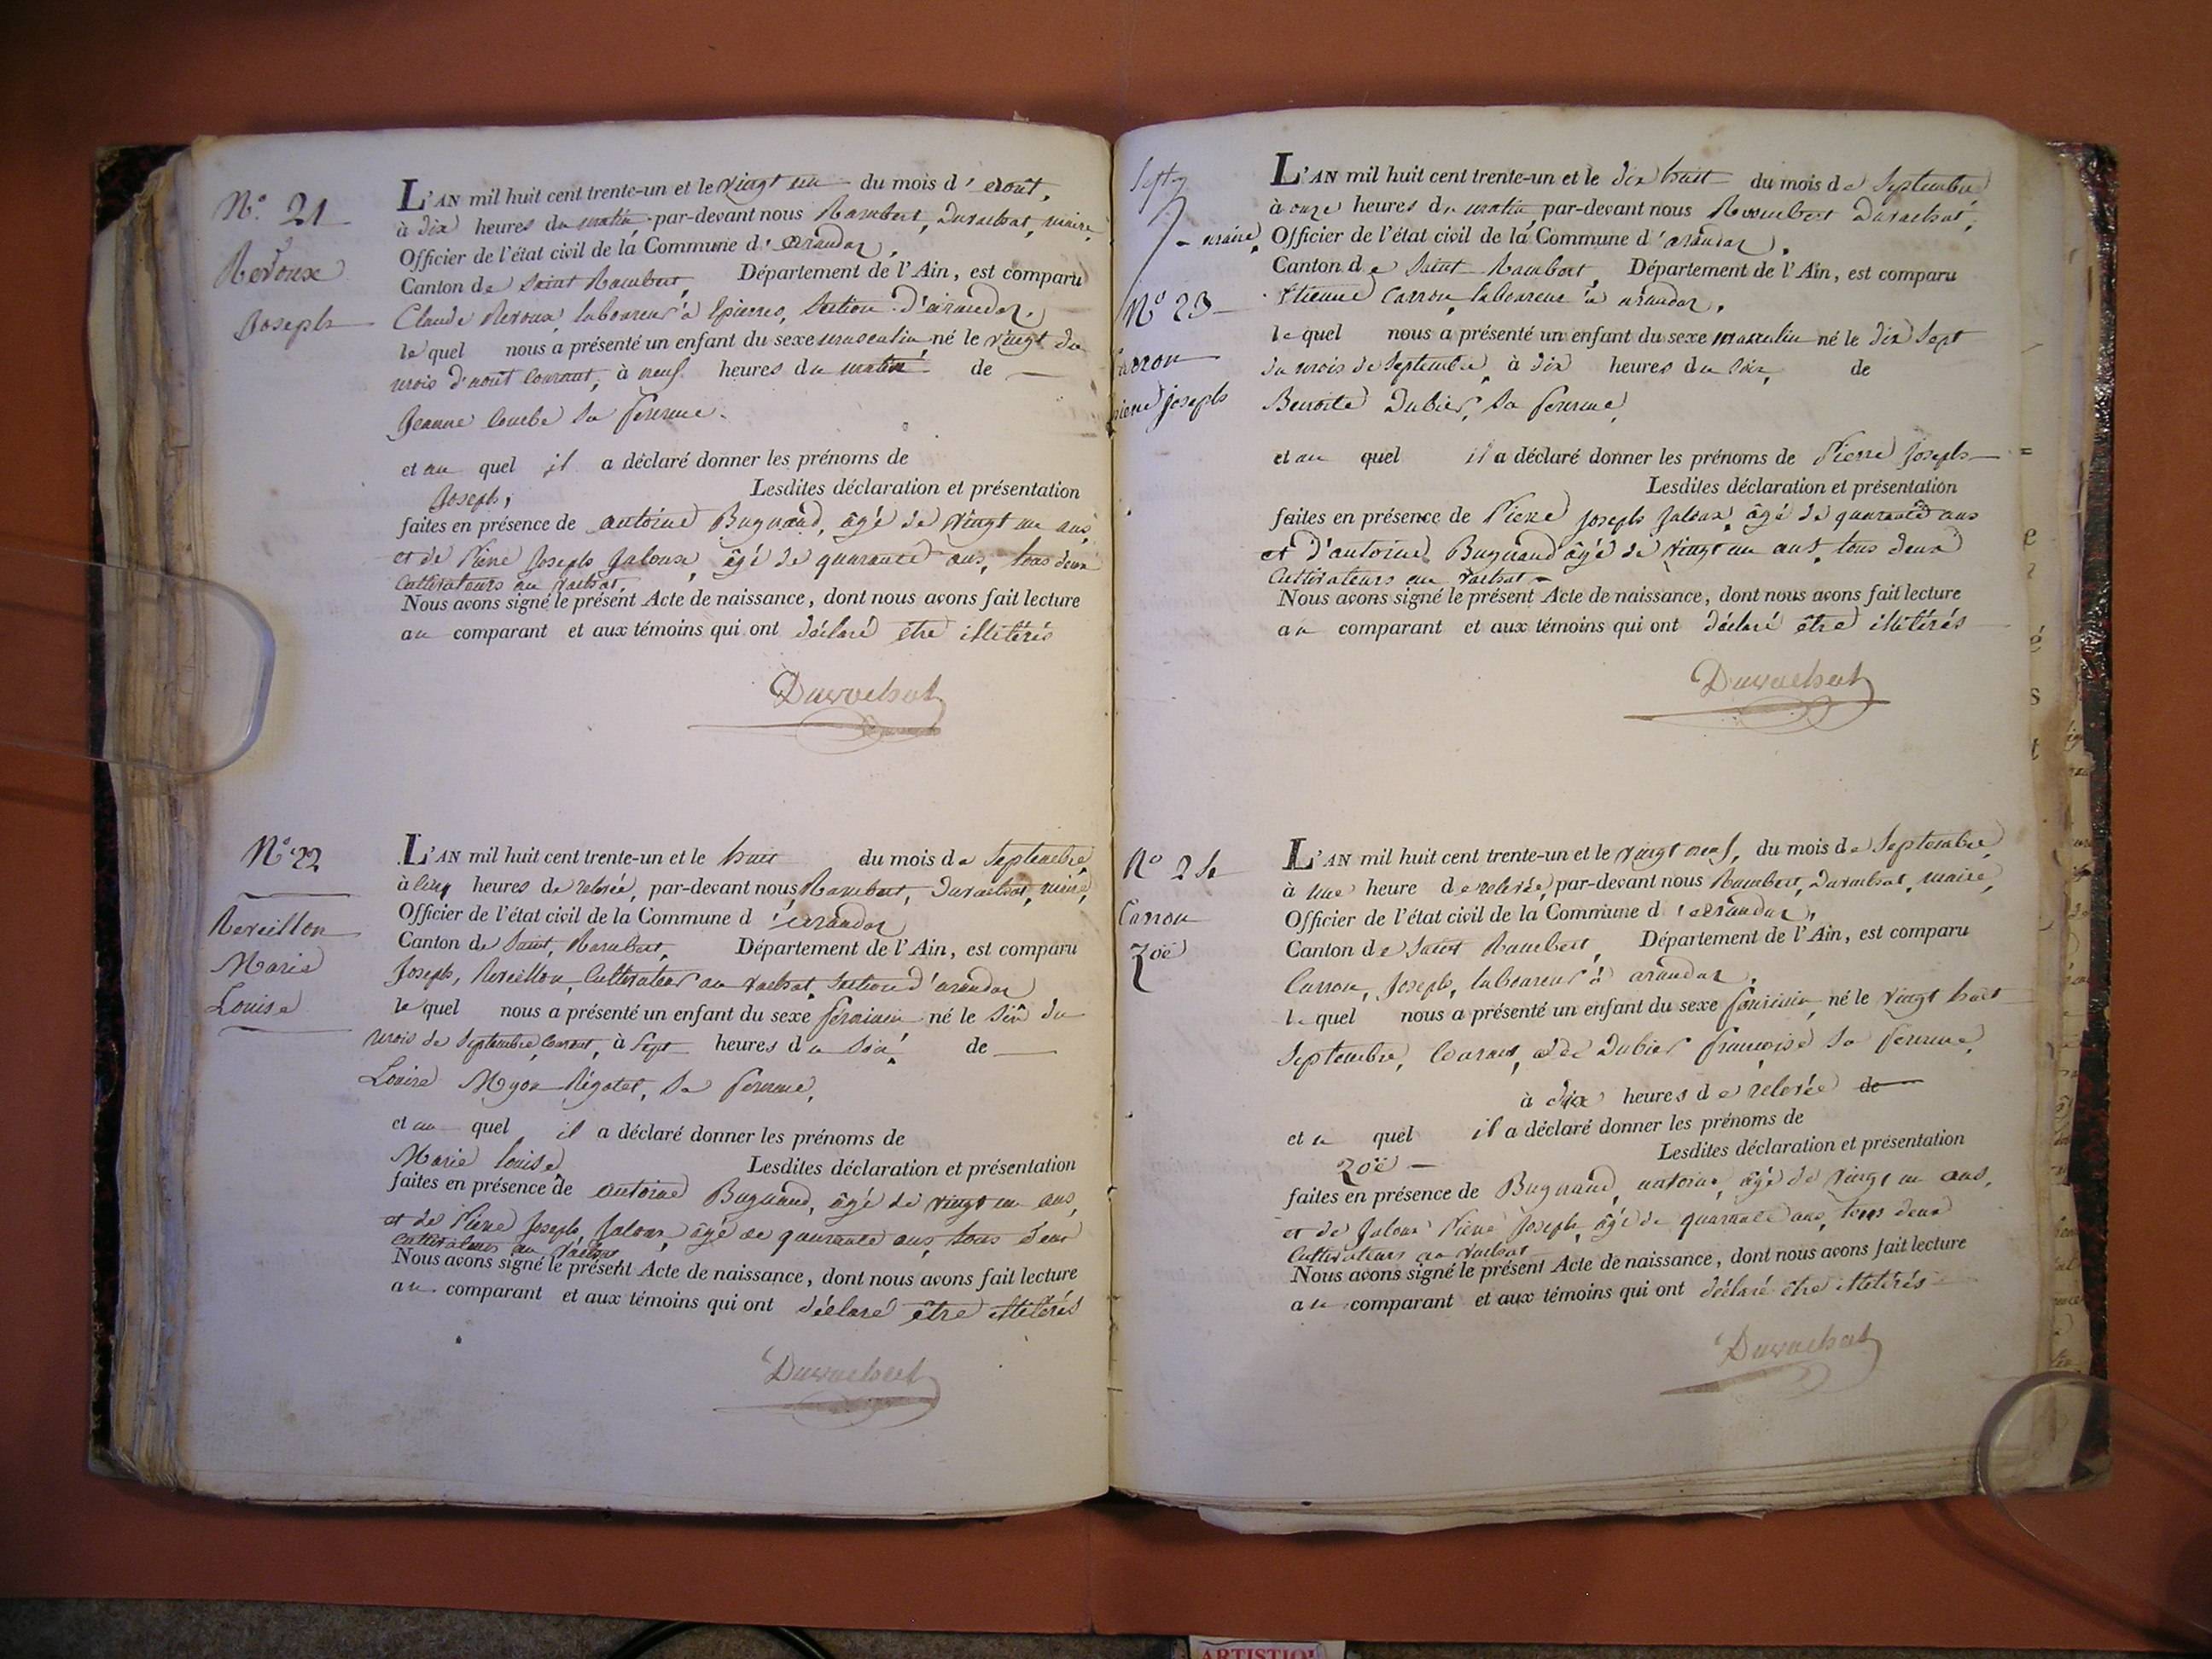 N.° 21
Revoux
Joseph
L'AN mil huit cent trente-un et le vingt un du mois d' aout,
à dix heures du matin, par-devant nous Rambert, Duvachat, maire,
Officier de l'état civil de la Commune d' arandaz,
Canton de Saint Rambert, Département de l'Ain, est comparu
Claude Revoux, laboureur à Epierres, Section d'arandaz,
le quel nous a présenté un enfant du sexe masculin né le vingt du
mois d'aout courant, à neuf heures du matin de
Jeanne Combe sa femme.
et au quel il a déclaré donner les prénoms de
Joseph, Lesdites déclaration et présentation
faites en présence de antoine Bugnand, âgé de vingt un ans,
et de Pierre Joseph Jaloux, âgé de quarante ans, tous deux
Cultivateurs au vachat,
Nous avons signé le présent Acte de naissance, dont nous avons fait lecture
au comparant et aux témoins qui ont déclaré être illitérés
Duvachat
N° 22
Reveillon
Marie
Louise
L'AN mil huit cent trente-un et le huit du mois de Septembre,
à cinq heures de relevée, par-devant nous, Rambert, Duvachat, maire,
Officier de l'état civil de la Commune d' arandaz
Canton de Saint, Rambert, Département de l'Ain, est comparu
Joseph, Reveillon, Cultivateur au vachat, Section d'arandaz
le quel nous a présenté un enfant du sexe féminin né le du
mois de Septembre, courant, à Sept heures du soir, de
Louise Myon sa femme,
et au quel il a déclaré donner les prénoms de
Marie Louise Lesdites déclaration et présentation
faites en présence de antoine Bugnand, âgé de vingt un ans,
et de Pierre Joseph, Jaloux, âgé de quarante ans, tous deux
Cultivateurs au vachat
Nous avons signé le présent Acte de naissance, dont nous avons fait lecture
au comparant et aux témoins qui ont déclaré être illitérés
Duvachat
maire,
N° 23
Carron
pierre joseph
L'AN mil huit cent trente-un et le dix huit du mois de Septembre
à onze heures du matin par-devant nous Rambert Duvachat,
Officier de l'état civil de la Commune d' arandaz,
Canton de Saint Rambert, Département de l'Ain, est comparu
Etienne Carron, laboureur à arandaz,
le quel nous a présenté un enfant du sexe masculin né le dix Sept
du mois de Septembre, à dix heures du soir, de
Benoite Dubier, sa femme,
et au quel il a déclaré donner les prénoms de Pierre Joseph
Lesdites déclaration et présentation
faites en présence de Pierre joseph Jaloux, âgé de quarante ans
et d'antoine Bugnand âgé de vingt un ans, tous deux
Cultivateurs au vachat
Nous avons signé le présent Acte de naissance, dont nous avons fait lecture
au comparant et aux témoins qui ont déclaré être illitérés
Duvachat
N° 24
Carron
Zoé
L'AN mil huit cent trente-un et le vingt neuf, du mois de Septembre
à une heure de relevée, par-devant nous Rambert, Duvachat, maire,
Officier de l'état civil de la Commune d' arandaz,
Canton de Saint Rambert, Département de l'Ain, est comparu
Carron, Joseph, laboureur à arandaz,
le quel nous a présenté un enfant du sexe féminin, né le vingt huit
Septembre, Courant, et de Dubier françoise sa femme,
à dix heures de relevée de
et au quel il a déclaré donner les prénoms de
Zoé Lesdites déclaration et présentation
faites en présence de Bugnand, antoine, âgé de vingt un ans,
et de Jaloux Pierre Joseph, âgé de quarante ans, tous deux
Cultivateurs au vachat
Nous avons signé le présent Acte de naissance, dont nous avons fait lecture
au comparant et aux témoins qui ont déclaré être illitérés
Duvachat